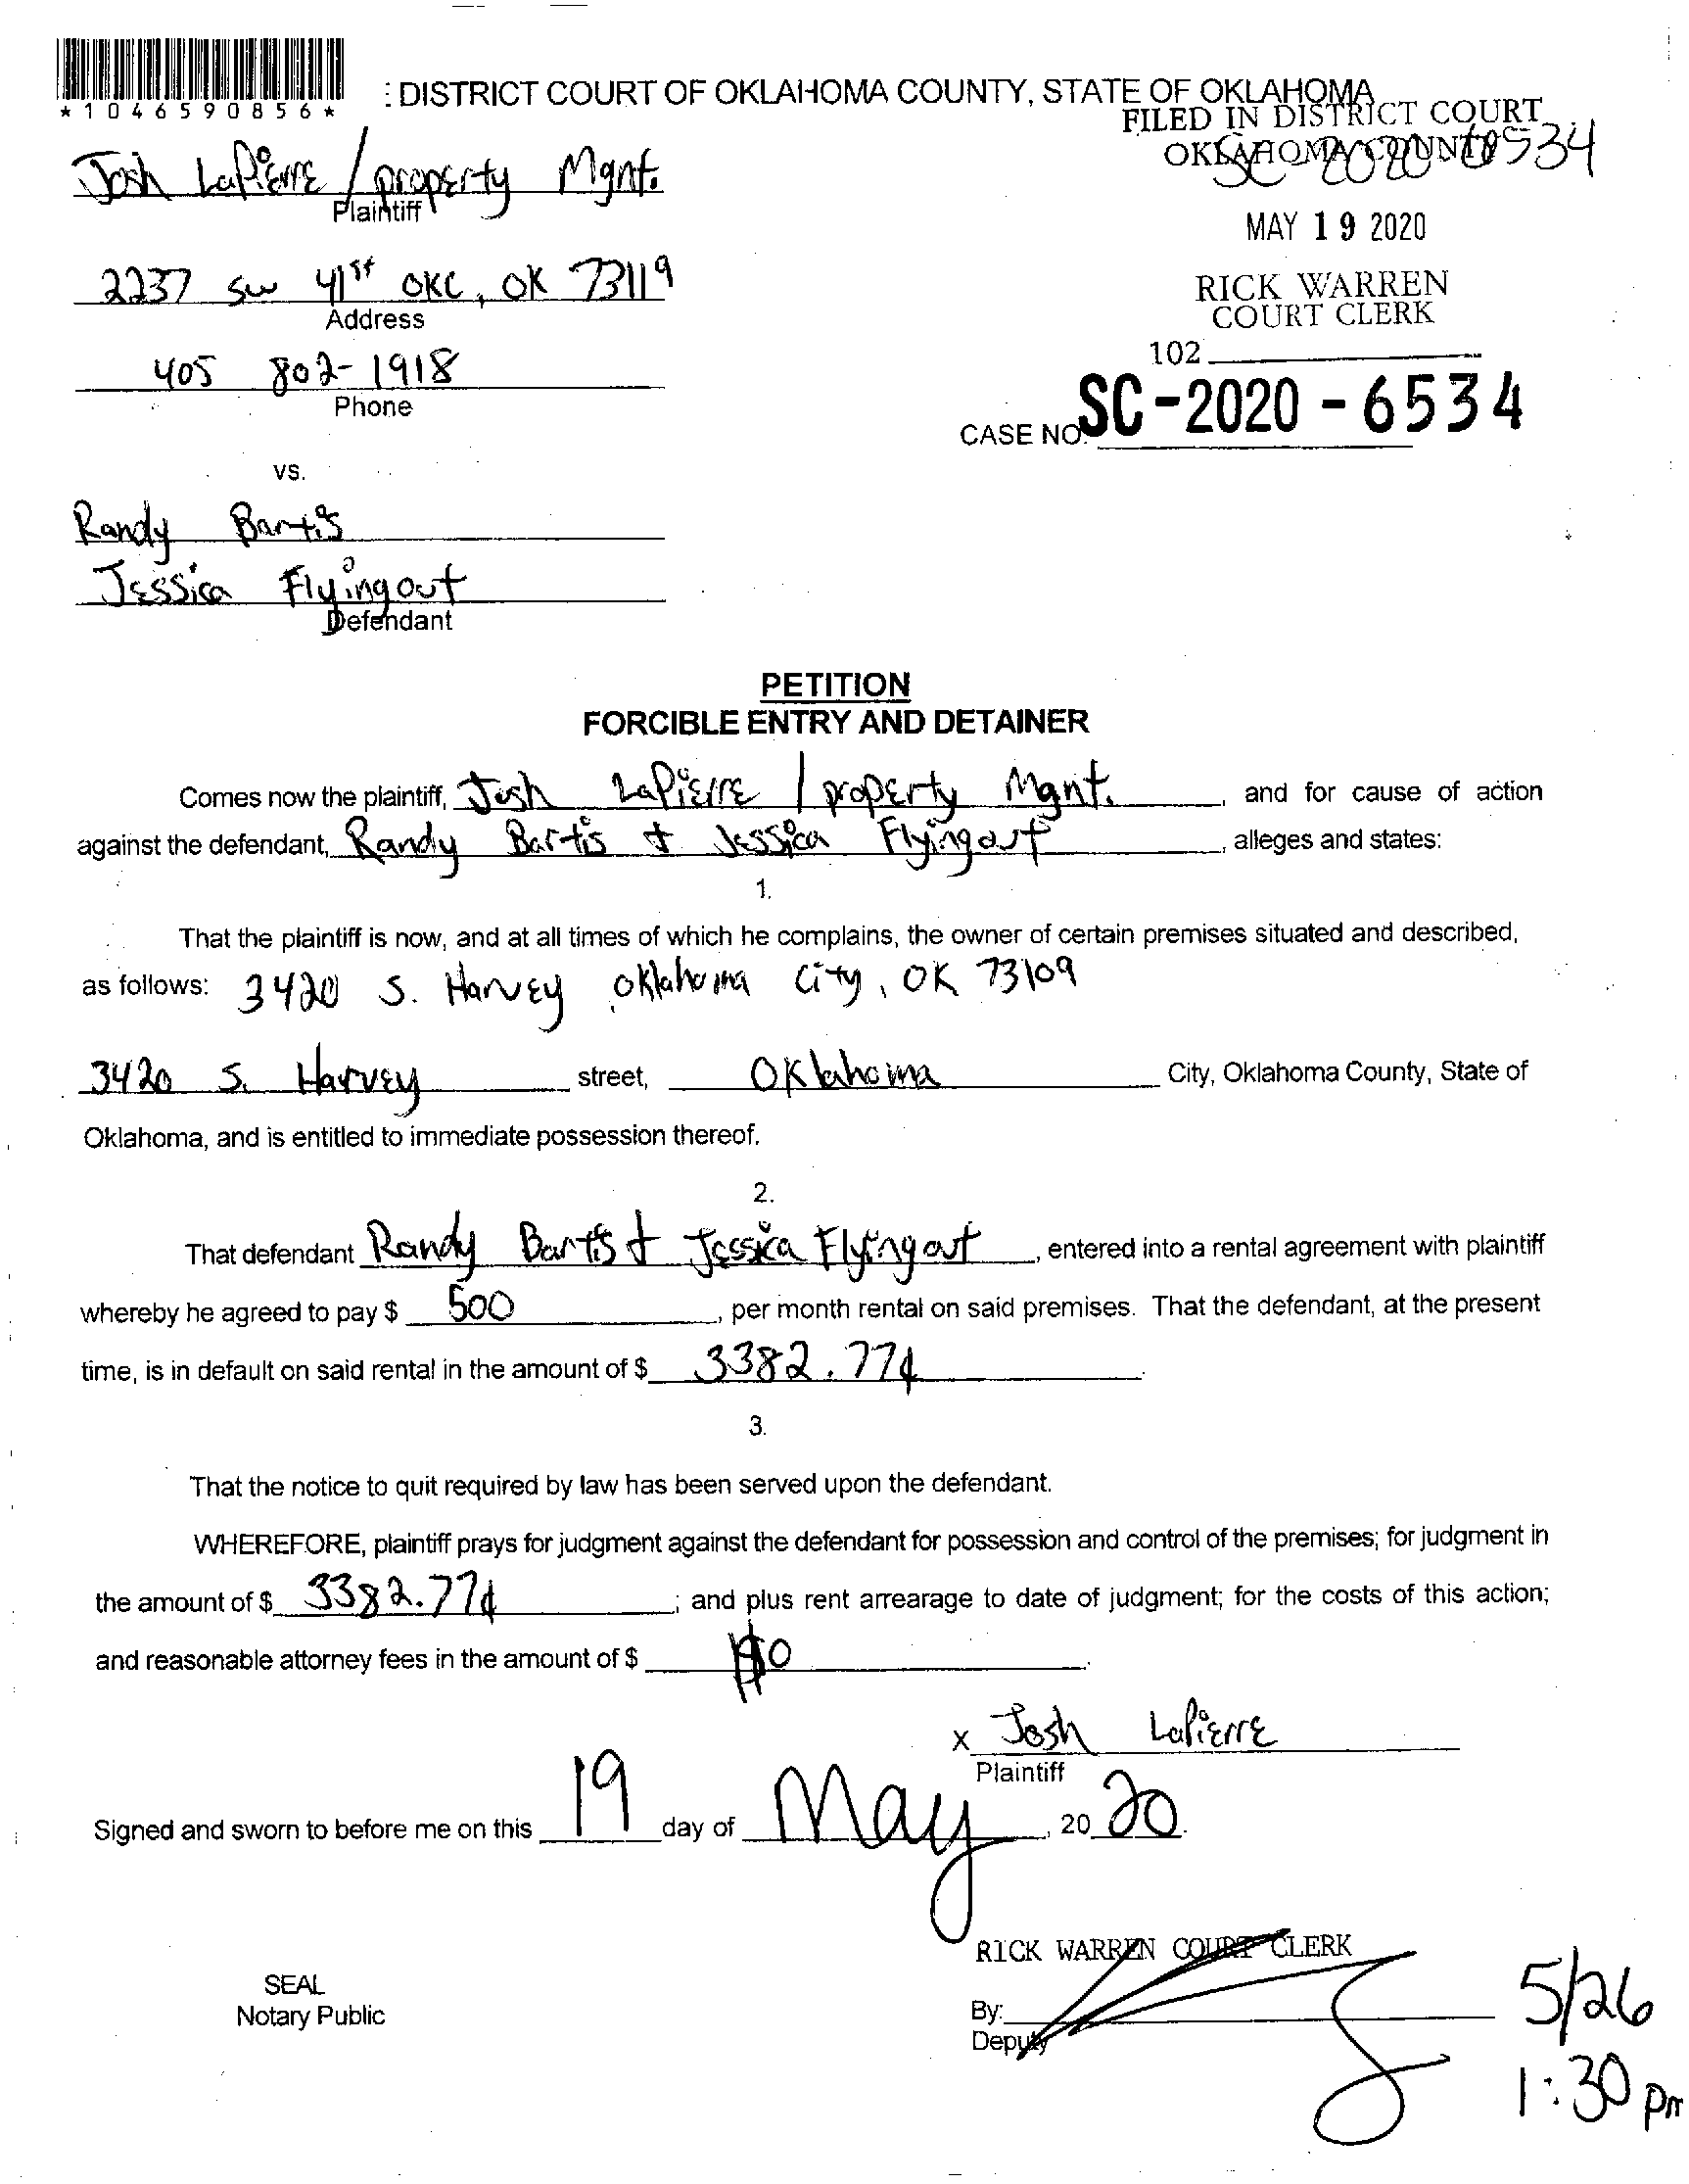 *1046590856*
: DISTRICT COURT OF OKLAHOMA COUNTY, STATE OF OKLAHOMA
FILED IN DISTRICT COURT
OKLAHOMA COUNTY
SC-2020-6534
Josh LaPierre / property Mgnt.
Plaintiff
MAY 19 2020
2237 SW 41st OKC, OK 73119
Address
RICK WARREN
COURT CLERK
102
405 802-1918
Phone
CASE NO. SC-2020-6534
vs.
Randy Bartis
Jessica Flyingout
Defendant
PETITION
FORCIBLE ENTRY AND DETAINER
Comes now the plaintiff, Josh LaPierre / property Mgnt. , and for cause of action
against the defendant, Randy Bartis + Jessica Flyingout , alleges and states:
1.
That the plaintiff is now, and at all times of which he complains, the owner of certain premises situated and described,
as follows: 3420 S. Harvey Oklahoma City, OK 73109
3420 S. Harvey street, Oklahoma City, Oklahoma County, State of
Oklahoma, and is entitled to immediate possession thereof.
2.
That defendant Randy Bartis + Jessica Flyingout , entered into a rental agreement with plaintiff
whereby he agreed to pay $ 500 , per month rental on said premises. That the defendant, at the present
time, is in default on said rental in the amount of $ 3382.77¢ .
3.
That the notice to quit required by law has been served upon the defendant.
WHEREFORE, plaintiff prays for judgment against the defendant for possession and control of the premises; for judgment in
the amount of $ 3382.77¢ ; and plus rent arrearage to date of judgment; for the costs of this action;
and reasonable attorney fees in the amount of $ $0 .
X Josh LaPierre
Plaintiff
Signed and sworn to before me on this 19 day of May , 20 20.
RICK WARREN COURT CLERK
SEAL
Notary Public
By:
Deputy
5/26
1:30 pm